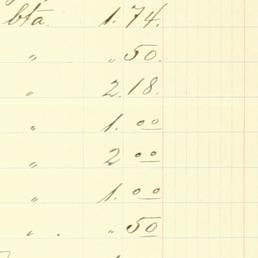 bta. 1.74.
" " 50.
" 2.18.
" 1.00
" 2 00
" 1.00
" . " 50